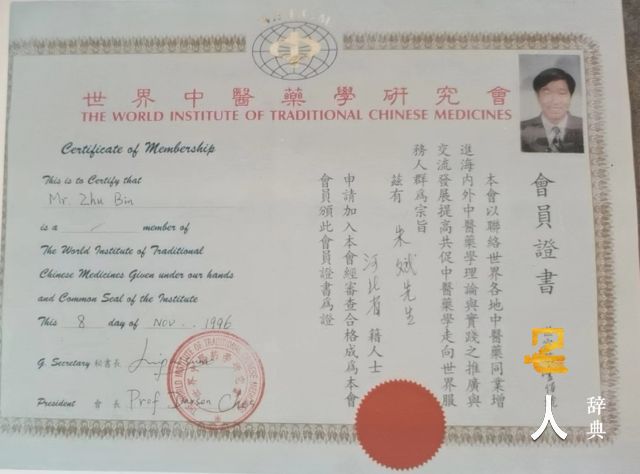 世界中醫藥學研究會
THE WORLD INSTITUTE OF TRADITIONAL CHINESE MEDICINES
Certificate of Membership
This is to Certify that
Mr. Zhu Bin
is a / member of
The World Institute of Traditional
Chinese Medicines Given under our hands
and Common Seal of the Institute
This 8 day of NOV.. 1996
G. Secretary 秘書長
President 會長 Prof
會員證書
本會以聯絡世界各地中醫藥同業增
進海內外中醫藥學理論與實踐之推廣與
交流發展提高共促中醫藥學走向世界服
務人群為宗旨
茲有 朱斌先生
河北省 籍人士
申請加入本會經審查合格成為本會
會員頒此會員證書為證
人
辞典